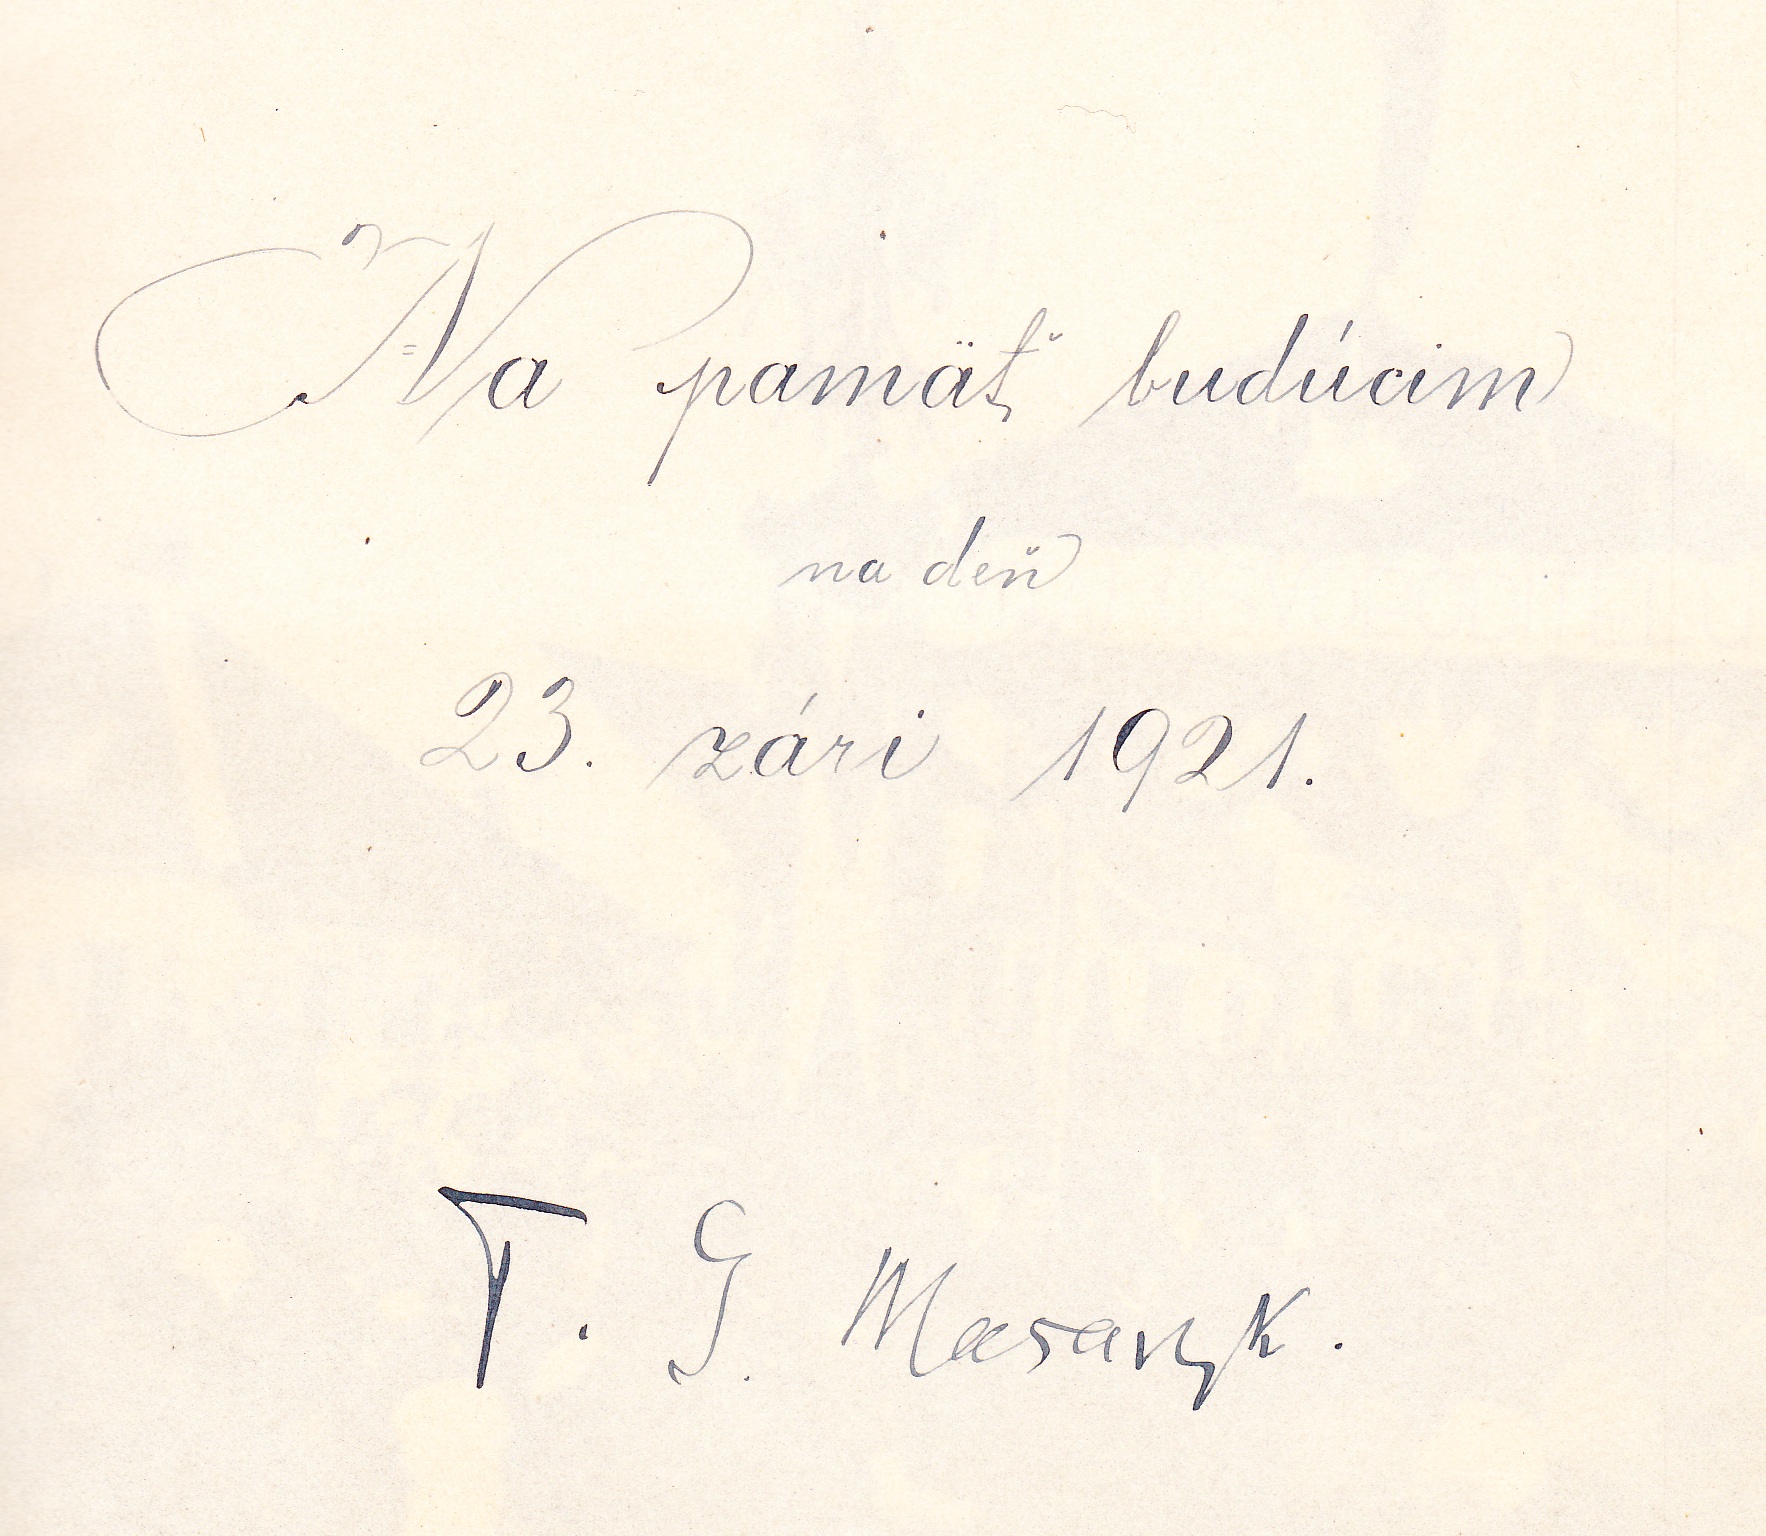 Na pamäť budúcim
na deň
23. zári 1921.
T. G. Masaryk.